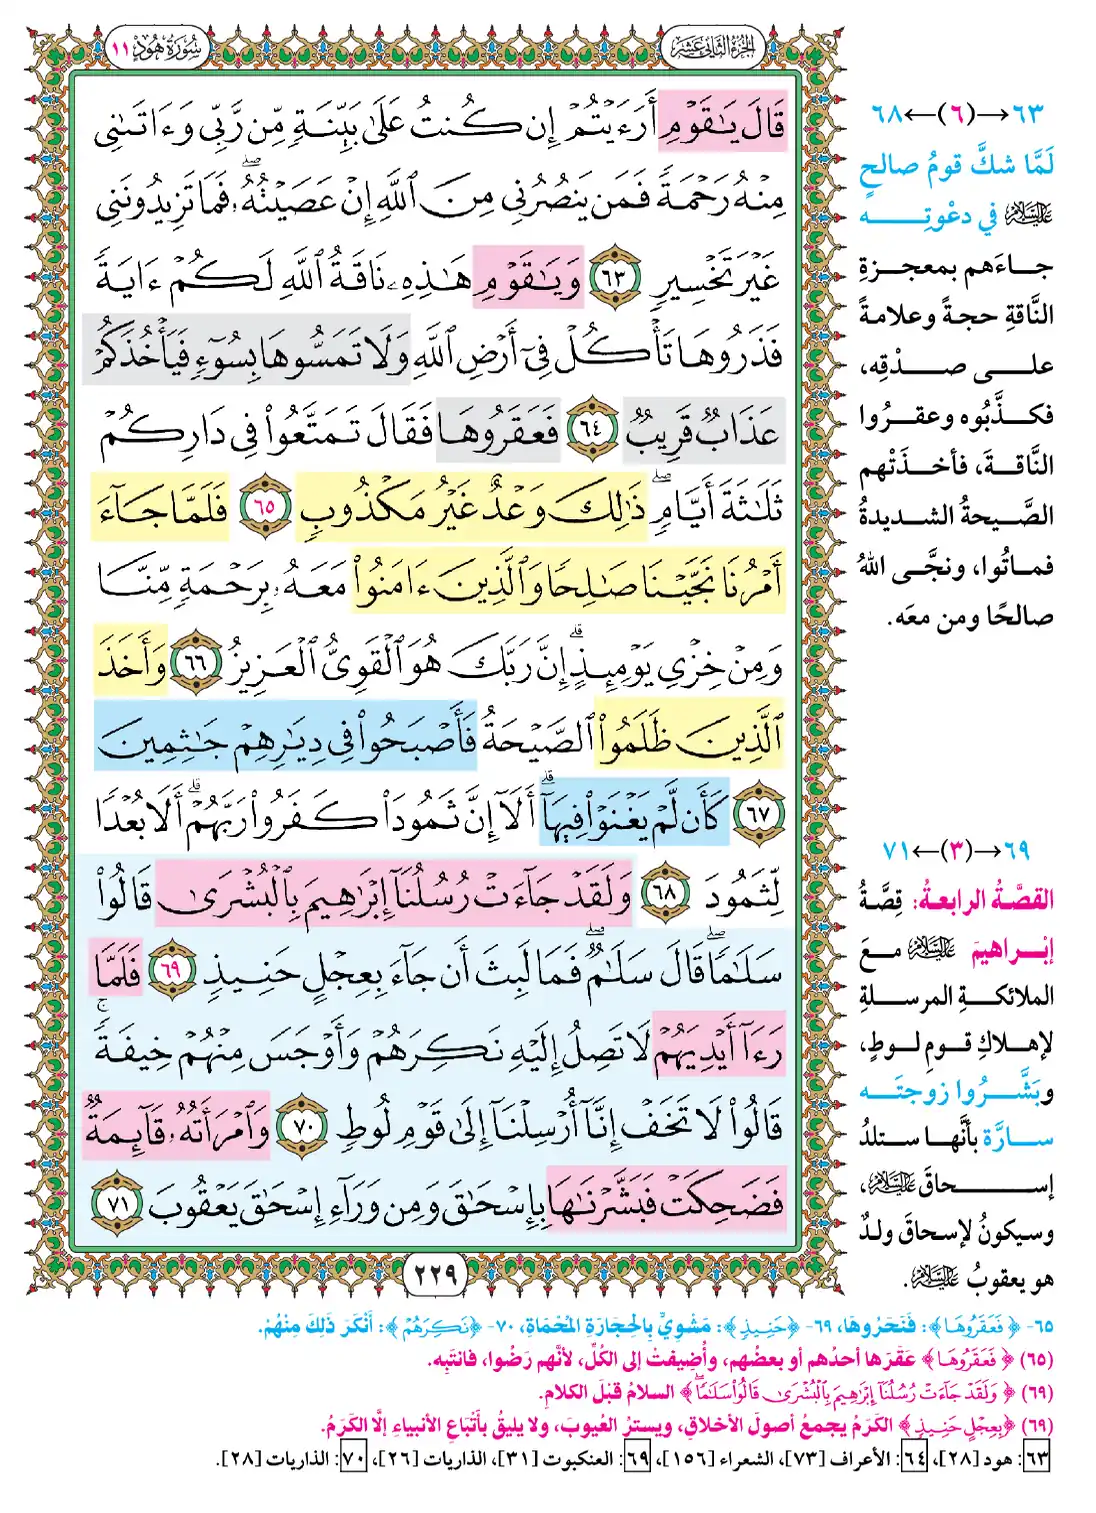 الجزء الثاني عشر
سورة هود ١١
قَالَ يَٰقَوْمِ أَرَءَيْتُمْ إِن كُنتُ عَلَىٰ بَيِّنَةٍ مِّن رَّبِّي وَءَاتَىٰنِي
مِنْهُ رَحْمَةً فَمَن يَنصُرُنِي مِنَ ٱللَّهِ إِنْ عَصَيْتُهُۥ ۖ فَمَا تَزِيدُونَنِي
غَيْرَ تَخْسِيرٍ ٦٣ وَيَٰقَوْمِ هَٰذِهِۦ نَاقَةُ ٱللَّهِ لَكُمْ ءَايَةً
فَذَرُوهَا تَأْكُلْ فِيٓ أَرْضِ ٱللَّهِ وَلَا تَمَسُّوهَا بِسُوٓءٍ فَيَأْخُذَكُمْ
عَذَابٌ قَرِيبٌ ٦٤ فَعَقَرُوهَا فَقَالَ تَمَتَّعُوا۟ فِي دَارِكُمْ
ثَلَٰثَةَ أَيَّامٍ ۖ ذَٰلِكَ وَعْدٌ غَيْرُ مَكْذُوبٍ ٦٥ فَلَمَّا جَآءَ
أَمْرُنَا نَجَّيْنَا صَٰلِحًا وَٱلَّذِينَ ءَامَنُوا۟ مَعَهُۥ بِرَحْمَةٍ مِّنَّا
وَمِنْ خِزْيِ يَوْمِئِذٍ ۗ إِنَّ رَبَّكَ هُوَ ٱلْقَوِيُّ ٱلْعَزِيزُ ٦٦ وَأَخَذَ
ٱلَّذِينَ ظَلَمُوا۟ ٱلصَّيْحَةُ فَأَصْبَحُوا۟ فِي دِيَٰرِهِمْ جَٰثِمِينَ
٦٧ كَأَن لَّمْ يَغْنَوْا۟ فِيهَآ ۗ أَلَآ إِنَّ ثَمُودَا۟ كَفَرُوا۟ رَبَّهُمْ ۗ أَلَا بُعْدًا
لِّثَمُودَ ٦٨ وَلَقَدْ جَآءَتْ رُسُلُنَآ إِبْرَٰهِيمَ بِٱلْبُشْرَىٰ قَالُوا۟
سَلَٰمًا ۖ قَالَ سَلَٰمٌ ۖ فَمَا لَبِثَ أَن جَآءَ بِعِجْلٍ حَنِيذٍ ٦٩ فَلَمَّا
رَءَآ أَيْدِيَهُمْ لَا تَصِلُ إِلَيْهِ نَكِرَهُمْ وَأَوْجَسَ مِنْهُمْ خِيفَةً ۚ
قَالُوا۟ لَا تَخَفْ إِنَّآ أُرْسِلْنَآ إِلَىٰ قَوْمِ لُوطٍ ٧٠ وَٱمْرَأَتُهُۥ قَآئِمَةٌ
فَضَحِكَتْ فَبَشَّرْنَٰهَا بِإِسْحَٰقَ وَمِن وَرَآءِ إِسْحَٰقَ يَعْقُوبَ ٧١
٢٢٩
٦٣→(٦)←٦٨
لَمَّا شكَّ قومُ صالحٍ
عليه السلام في دعْوتِــه
جاءَهم بمعجزةِ
النَّاقةِ حجةً وعلامةً
على صدْقِه،
فكذَّبُوه وعقرُوا
النَّاقةَ، فأخذَتْهم
الصَّيحةُ الشديدةُ
فماتُوا، ونجَّى اللهُ
صالحًا ومن معَه.
٦٩→(٣)←٧١
القصَّةُ الرابعةُ: قِصَّةُ
إبْراهيمَ عليه السلام معَ
الملائكةِ المرسلةِ
لإهلاكِ قومِ لوطٍ،
وبَشَّرُوا زوجتَه
سارَّة بأنَّها ستلدُ
إسحاقَ عليه السلام،
وسيكونُ لإسحاقَ ولدٌ
هو يعقوبُ عليه السلام.
٦٥- ﴿فَعَقَرُوهَا﴾: فَنَحَرُوهَا، ٦٩- ﴿حَنِيذٍ﴾: مَشْوِيٍّ بِالحِجَارَةِ المُحْمَاةِ، ٧٠- ﴿نَكِرَهُمْ﴾: أَنْكَرَ ذَلِكَ مِنْهُمْ.
(٦٥) ﴿فَعَقَرُوهَا﴾ عَقَرَها أحدُهم أو بعضُهم، وأُضِيفتْ إلى الكُلِّ، لأنَّهم رَضُوا، فانتَبِه.
(٦٩) ﴿وَلَقَدْ جَآءَتْ رُسُلُنَآ إِبْرَٰهِيمَ بِٱلْبُشْرَىٰ قَالُوا۟ سَلَٰمًا ۖ﴾ السلامُ قبْلَ الكلام.
(٦٩) ﴿بِعِجْلٍ حَنِيذٍ﴾ الكَرَمُ يجمعُ أصولَ الأخلاقِ، ويسترُ العُيوبَ، ولا يليقُ بأتْبَاعِ الأنبياءِ إلَّا الكَرَمُ.
٦٣: هود [٢٨]، ٦٤: الأعراف [٧٣]، الشعراء [١٥٦]، ٦٩: العنكبوت [٣١]، الذاريات [٢٦]، ٧٠: الذاريات [٢٨].